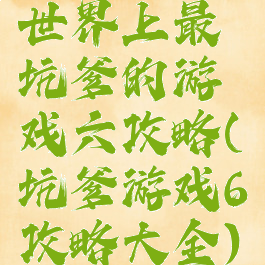 世界上最
坑爹的游
戏六攻略(
坑爹游戏6
攻略大全)